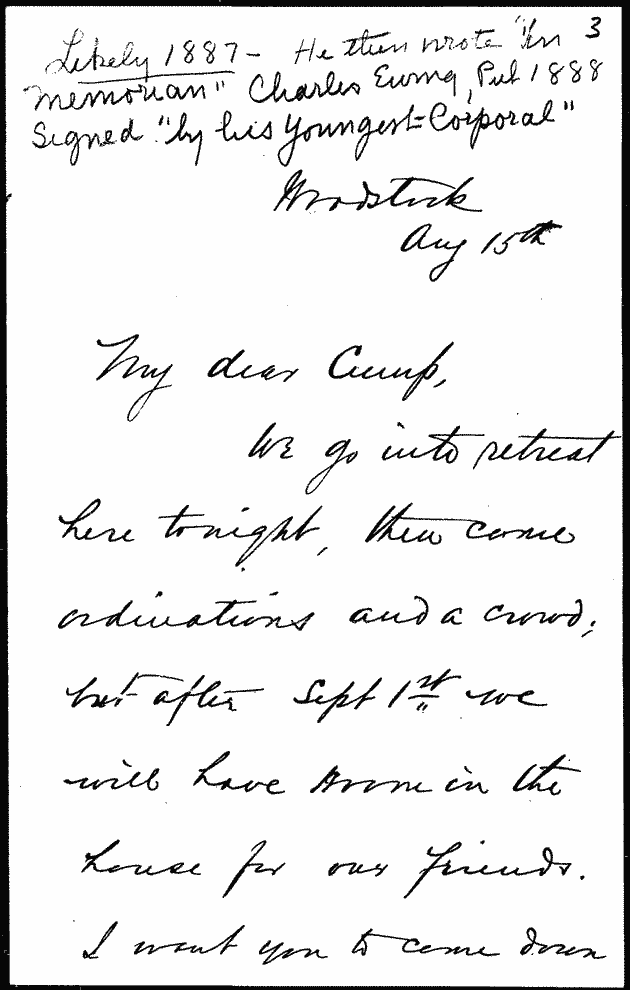 3
Likely 1887 - He then wrote "In
memorian" Charles Ewing, Pub 1888
Signed "by his Youngest-Corporal"
Woodstock
Aug 15th
My dear Cump,
We go into retreat
here tonight, then come
ordinations and a crowd;
but after Sept 1st we
will have room in the
house for our friends.
I want you to come down